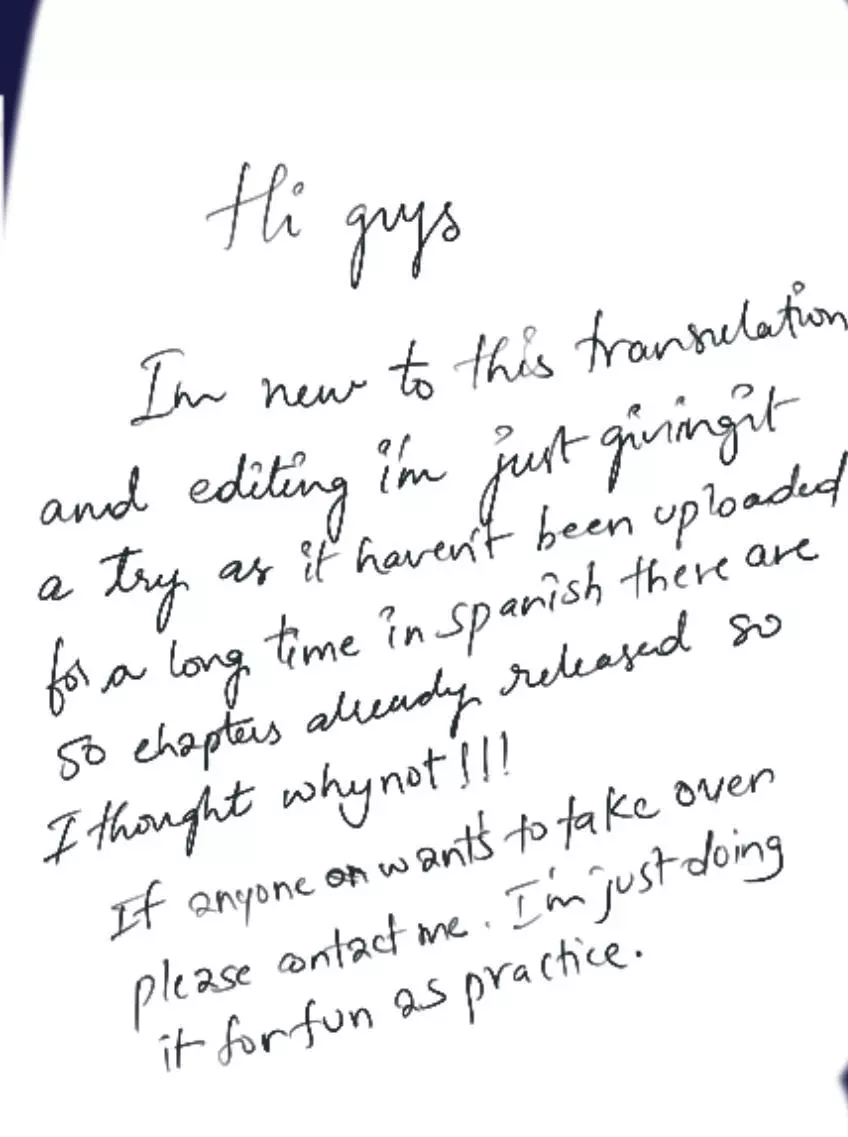 Hi guys
Im new to this transulation
and editing i'm just giving it
a try as it haven't been uploaded
for a long time in spanish there are
50 chapters already released so
I thought why not!!!
If anyone on wants to take over
please contact me. I'm just doing
it for fun as practice.